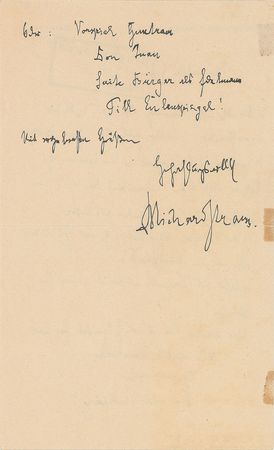 Oder: Vorspiel Guntram
Don Juan
Suite Bürger als Edelmann
Till Eulenspiegel!
Mit besten Grüßen
Richard Strauss.